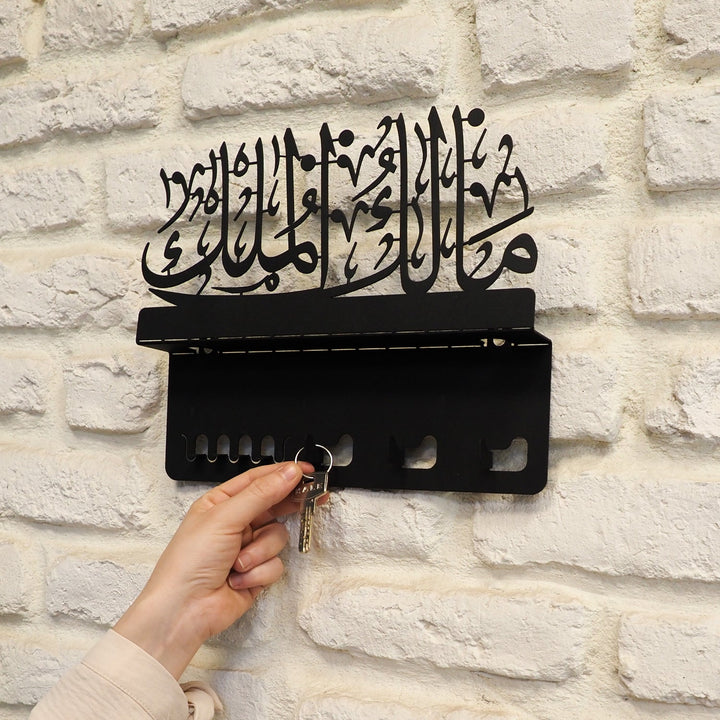 مَالِكُ الْمُلْكِ